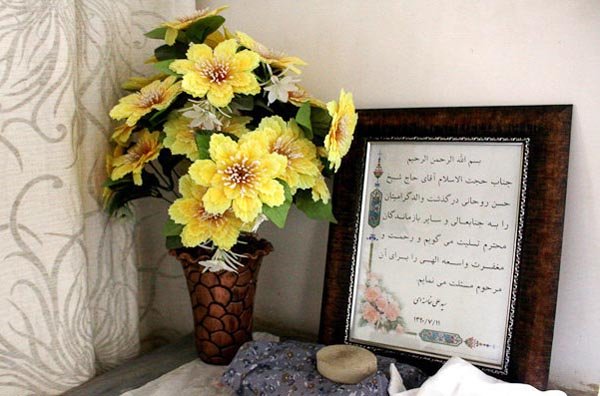 بسم الله الرحمن الرحیم
جناب حجت الاسلام آقای حاج شیخ
حسن روحانی درگذشت والدگرامیتان
را به جنابعالی و سایر بازماندگان
محترم تسلیت می گویم و رحمت و
مغفرت واسعه الهی را برای آن
مرحوم مسئلت می نمایم.
سیدعلی خامنه‌ای
۱۳۹۰/۷/۱۱